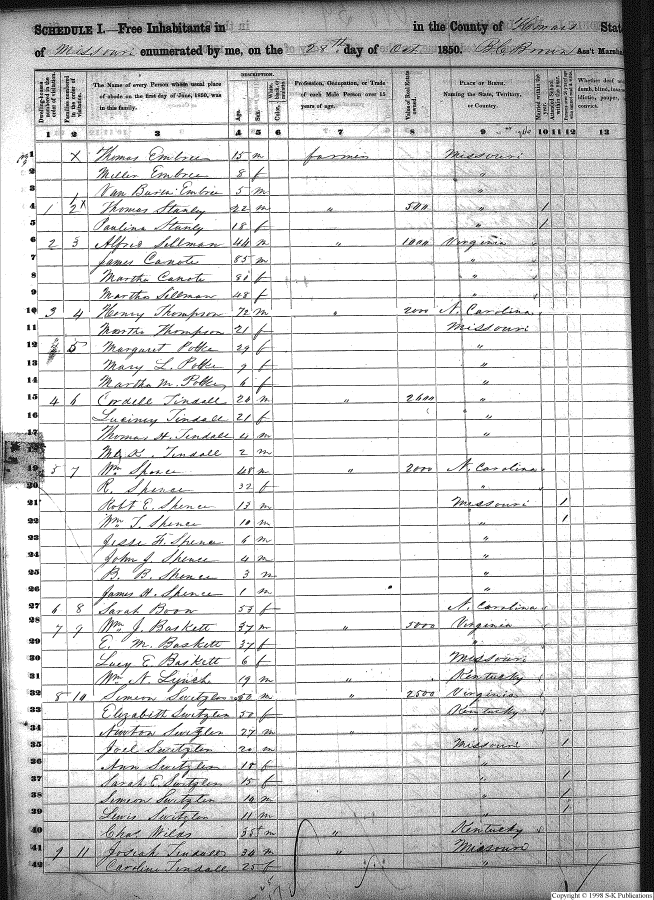 SCHEDULE I.—Free Inhabitants in in the County of Howard State
of Missouri enumerated by me, on the 28th day of Oct 1850. Ass't Marshal
DESCRIPTION.
Dwelling-houses numbered in the order of visitation. Families numbered in the order of visitation. The Name of every Person whose usual place of abode on the first day of June, 1850, was in this family. Age. Sex. Color. Profession, Occupation, or Trade of each Male Person over 15 years of age. Value of Real Estate owned. PLACE OF BIRTH. Naming the State, Territory, or Country. Married within the year. Whether deaf and dumb, blind, insane, idiotic, pauper, or convict.
1 2 3 4 5 6 7 8 9 10 11 12 13
1 x Thomas Embree 15 m farmer Missouri
2 Miller Embree 8 f "
3 Van Buren Embree 5 m "
4 1 2 x Thomas Stanley 22 m " 500 " 1
5 Paulina Stanly 18 f " 1
6 2 3 Alfred Sellman 44 m " 1000 Virginia
7 James Canote 85 m "
8 Martha Canote 80 f "
9 Martha Sellman 48 f "
10 3 4 Henry Thompson 72 m " 2000 N. Carolina
11 Martha Thompson 21 f Missouri
12 5 Margaret 29 f "
13 Mary L. 9 f "
14 Martha M. 6 f "
15 4 6 Cordell Tindall 26 m " 2600 "
16 Luciney Tindall 21 f "
17 Thomas H. Tindall 4 m "
18 Tindall 2 m
19 5 7 Wm Spence 48 m " 2000 N. Carolina
20 R. Spence 32 f "
21 Robt E. Spence 13 m Missouri 1
22 Wm T. Spence 10 m " 1
23 Jesse H. Spence 6 m "
24 John J. Spence 4 m "
25 B. B. Spence 3 m "
26 James H. Spence 1 m "
27 6 8 Sarah Boon 53 f N. Carolina
28 7 9 Wm J. Baskett 37 m " 5000 Virginia
29 E. M. Baskett 37 f "
30 Lucy E. Baskett 6 f Missouri
31 Wm N. Lynch 19 m " Kentucky
32 8 10 Simeon Switzler 60 m " 2500 Virginia
33 Elizabeth Switzler 50 f Kentucky
34 Newton Switzler 27 m " "
35 Joel Switzler 20 m Missouri 1
36 Ann Switzler 18 f "
37 Sarah E. Switzler 15 f " 1
38 Simeon Switzler 14 m " 1
39 Lewis Switzler 11 m " 1
40 Chas Wilds 35 m " Kentucky
41 9 11 Josiah Tindall 34 m " Missouri
42 Caroline Tindall 25 f "
Copyright © 1998 S-K Publications